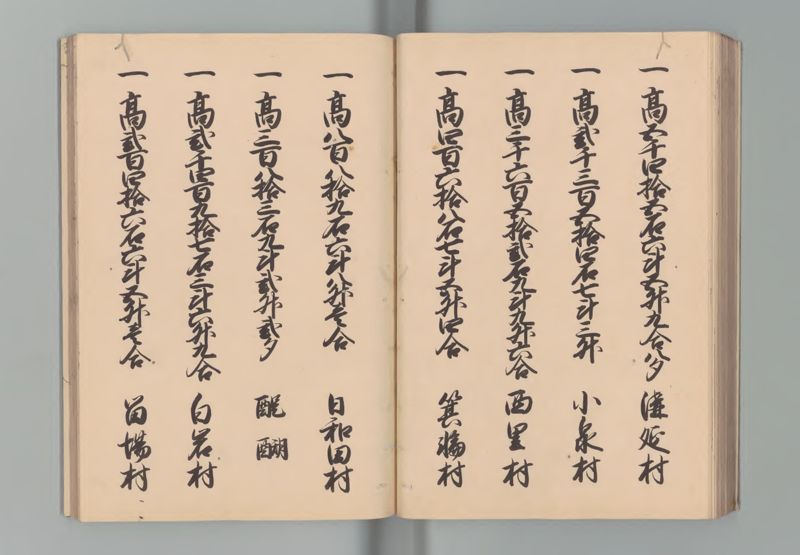 一 高五千四拾五石六斗五升九合八夕 溝延村
一 高弐千三百五拾四石七斗三升 小泉村
一 高三千六百五拾弐石九斗九升六合 西里村
一 高四百六拾八石七斗五升四合 箕輪村
一 高八百八拾九石六斗八升壱合 日和田村
一 高三百八拾三石九斗弐升弐夕 醍醐
一 高弐千四百九拾七石三斗六升九合 白岩村
一 高弐百四拾六石六斗五升壱合 留場村